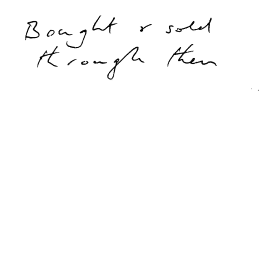 Bought & sold
through them